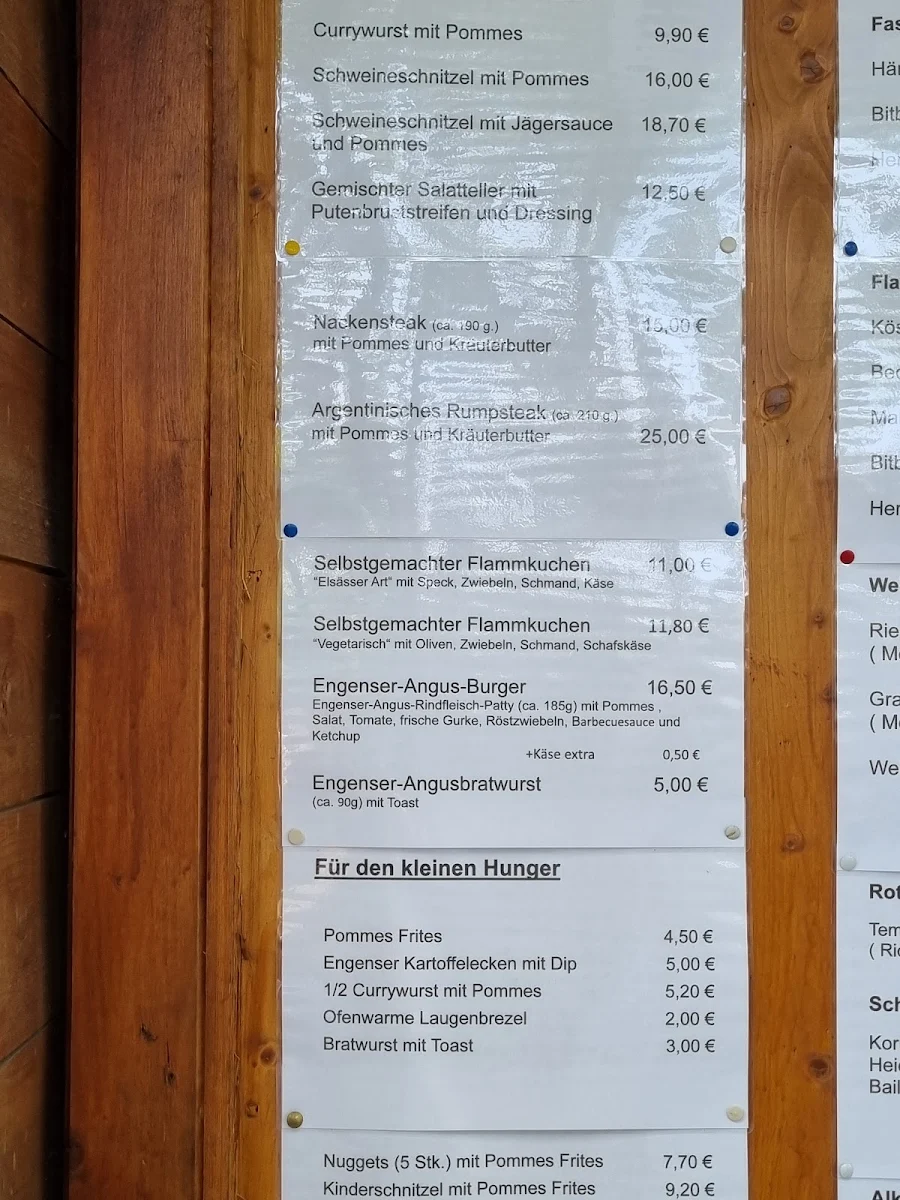 Currywurst mit Pommes 9,90 €
Schweineschnitzel mit Pommes 16,00 €
Schweineschnitzel mit Jägersauce 18,70 €
und Pommes
Gemischter Salatteller mit 12,50 €
Putenbruststreifen und Dressing
Nackensteak (ca. 190 g.) 15,00 €
mit Pommes und Kräuterbutter
Argentinisches Rumpsteak (ca. 210 g.)
mit Pommes und Kräuterbutter 25,00 €
Selbstgemachter Flammkuchen 11,00 €
"Elsässer Art" mit Speck, Zwiebeln, Schmand, Käse
Selbstgemachter Flammkuchen 11,80 €
"Vegetarisch" mit Oliven, Zwiebeln, Schmand, Schafskäse
Engenser-Angus-Burger 16,50 €
Engenser-Angus-Rindfleisch-Patty (ca. 185g) mit Pommes ,
Salat, Tomate, frische Gurke, Röstzwiebeln, Barbecuesauce und
Ketchup
+Käse extra 0,50 €
Engenser-Angusbratwurst 5,00 €
(ca. 90g) mit Toast
Für den kleinen Hunger
Pommes Frites 4,50 €
Engenser Kartoffelecken mit Dip 5,00 €
1/2 Currywurst mit Pommes 5,20 €
Ofenwarme Laugenbrezel 2,00 €
Bratwurst mit Toast 3,00 €
Nuggets (5 Stk.) mit Pommes Frites 7,70 €
Kinderschnitzel mit Pommes Frites 9,20 €